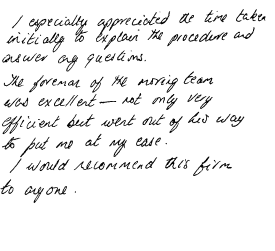 I especially appreciated the time taken
initially to explain the procedure and
answer any questions.
The foreman of the moving team
was excellent — not only very
efficient but went out of his way
to put me at my ease.
I would recommend this firm
to anyone.